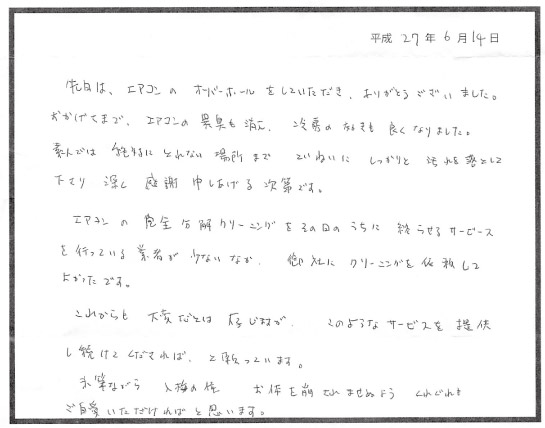 平成 27年 6月 14日
先日は、エアコンの オーバーホール をしていただき、ありがとうございました。
おかげさまで、エアコンの 異臭も 消え、冷房の 効きも 良く なりました。
素人では 絶対に とれない 場所 まで ていねいに しっかりと 汚れを 落として
下さり 深く 感謝 申しあげる 次第です。
エアコン の 完全 分解 クリーニング を その日の うちに 終らせる サービース
を 行っている 業者が 少ない なか、 御社に クリーニングを 依頼して
よかった です。
これからも 大変だとは 存じますが、 このような サービスを 提供
し 続けて くだされば、 と 願っています。
末筆ながら 入梅の候 お体を 崩されませぬよう くれぐれも
ご自愛 いただければ と 思います。